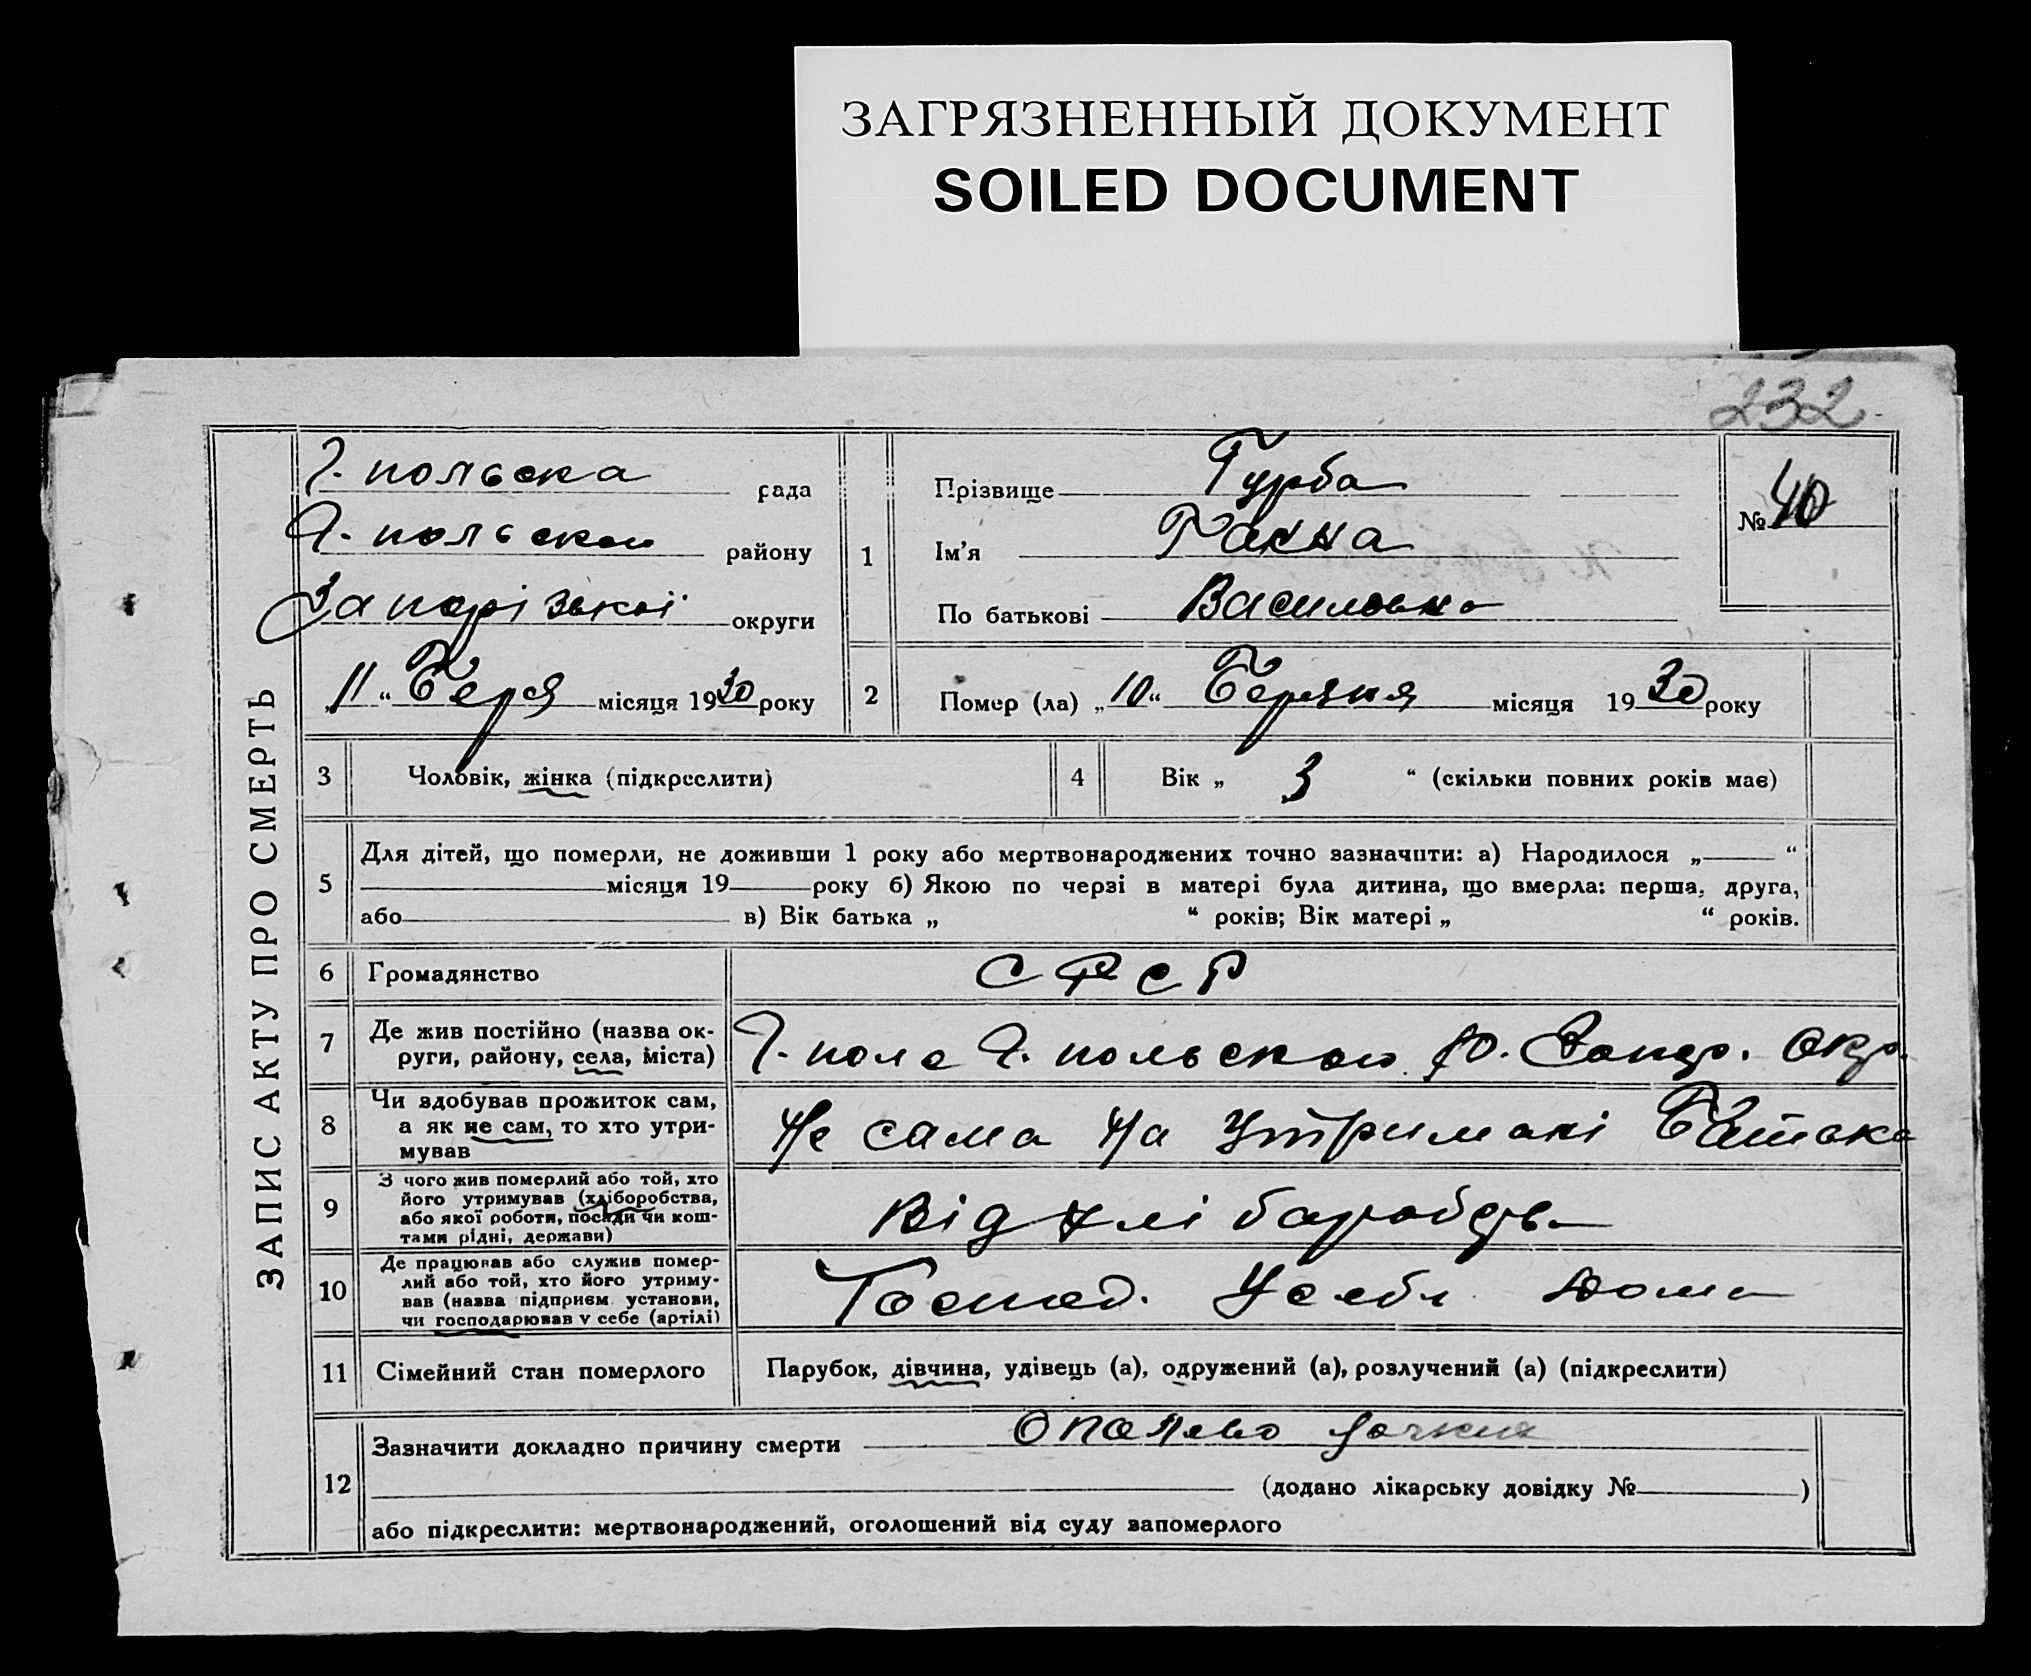 ЗАГРЯЗНЕННЫЙ ДОКУМЕНТ
SOILED DOCUMENT
232
ЗАПИС АКТУ ПРО СМЕРТЬ
Г. польска рада
Г. польского району
Запорізької округи
„11“ Беря місяця 1930 року
1
Прізвище Гурба
Ім’я Ганна
По батькові Васильовна
№ 40
2
Помер (ла) „10“ Березня місяця 1930 року
3 Чоловік, жінка (підкреслити)
4 Вік „ 3 “ (скільки повних років має)
5 Для дітей, що померли, не доживши 1 року або мертвонароджених точно зазначити: а) Народилося „ “
місяця 19 року б) Якою по черзі в матері була дитина, що вмерла: перша, друга,
або в) Вік батька „ “ років; Вік матері „ “ років.
6 Громадянство СРСР
7 Де жив постійно (назва ок-
руги, району, села, міста)
Г. поле Г. польского р. Запор. окр.
8 Чи здобував прожиток сам,
а як не сам, то хто утри-
мував
Не сама На Утримані Батька
9 З чого жив померлий або той, хто
його утримував (хліборобства,
або якої роботи, посади чи кош-
тами рідні, держави)
Від хліборобств
10 Де працював або служив помер-
лий або той, хто його утриму-
вав (назва підприєм. установи,
чи господарював у себе (артілі)
Господ. Усебя дома
11 Сімейний стан померлого Парубок, дівчина, удівець (а), одружений (а), розлучений (а) (підкреслити)
12 Зазначити докладно причину смерти
(додано лікарську довідку № )
або підкреслити: мертвонароджений, оголошений від суду запомерлого